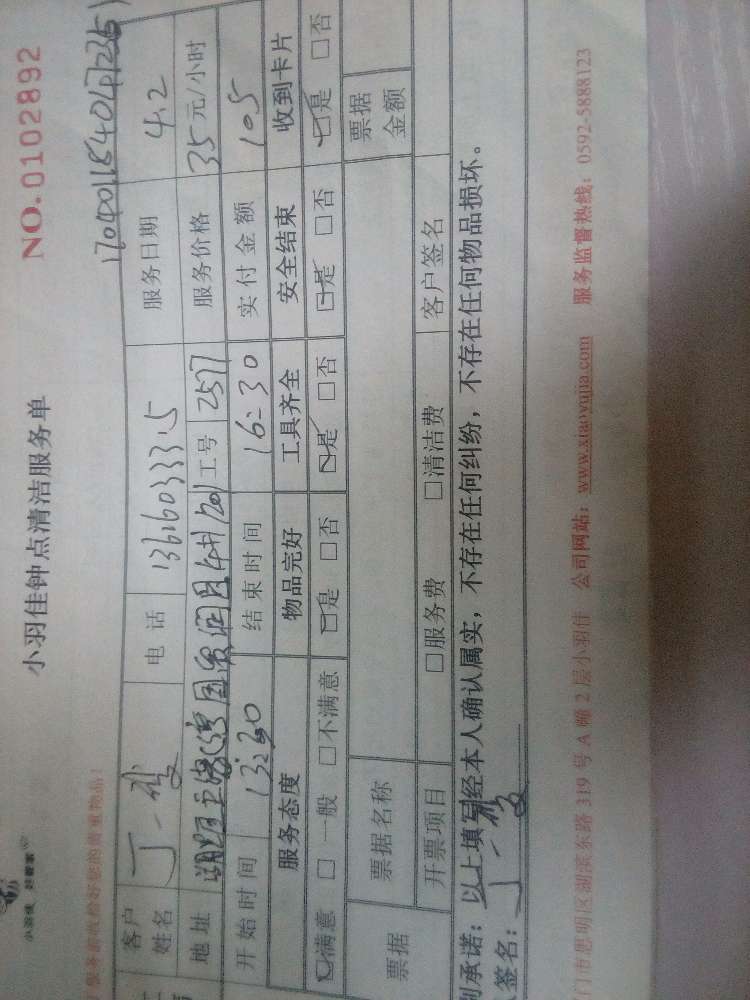 小羽佳 好管家
小羽佳钟点清洁服务单
NO.0102892
服务前收检好您的贵重物品!
客户姓名 丁一 电 话 13616033315 服务日期 4.2
地 址 2号1201 工号 2577 服务价格 35元/小时
开始时间 13:30 结束时间 16:30 实付金额 105
服务态度 物品完好 工具齐全 安全结束 收到卡片
☑满意 □一般 □不满意 ☑是 □否 ☑是 □否 ☑是 □否 ☑是 □否
票据 票据名称 票据金额
开票项目 □服务费 □清洁费 客户签名
承诺:以上填写经本人确认属实,不存在任何纠纷,不存在任何物品损坏。
签名:丁一
门市思明区湖滨东路 319 号 A 幢 2 层小羽佳 公司网站:www.xiaoyujia.com 服务监督热线:0592-5888123